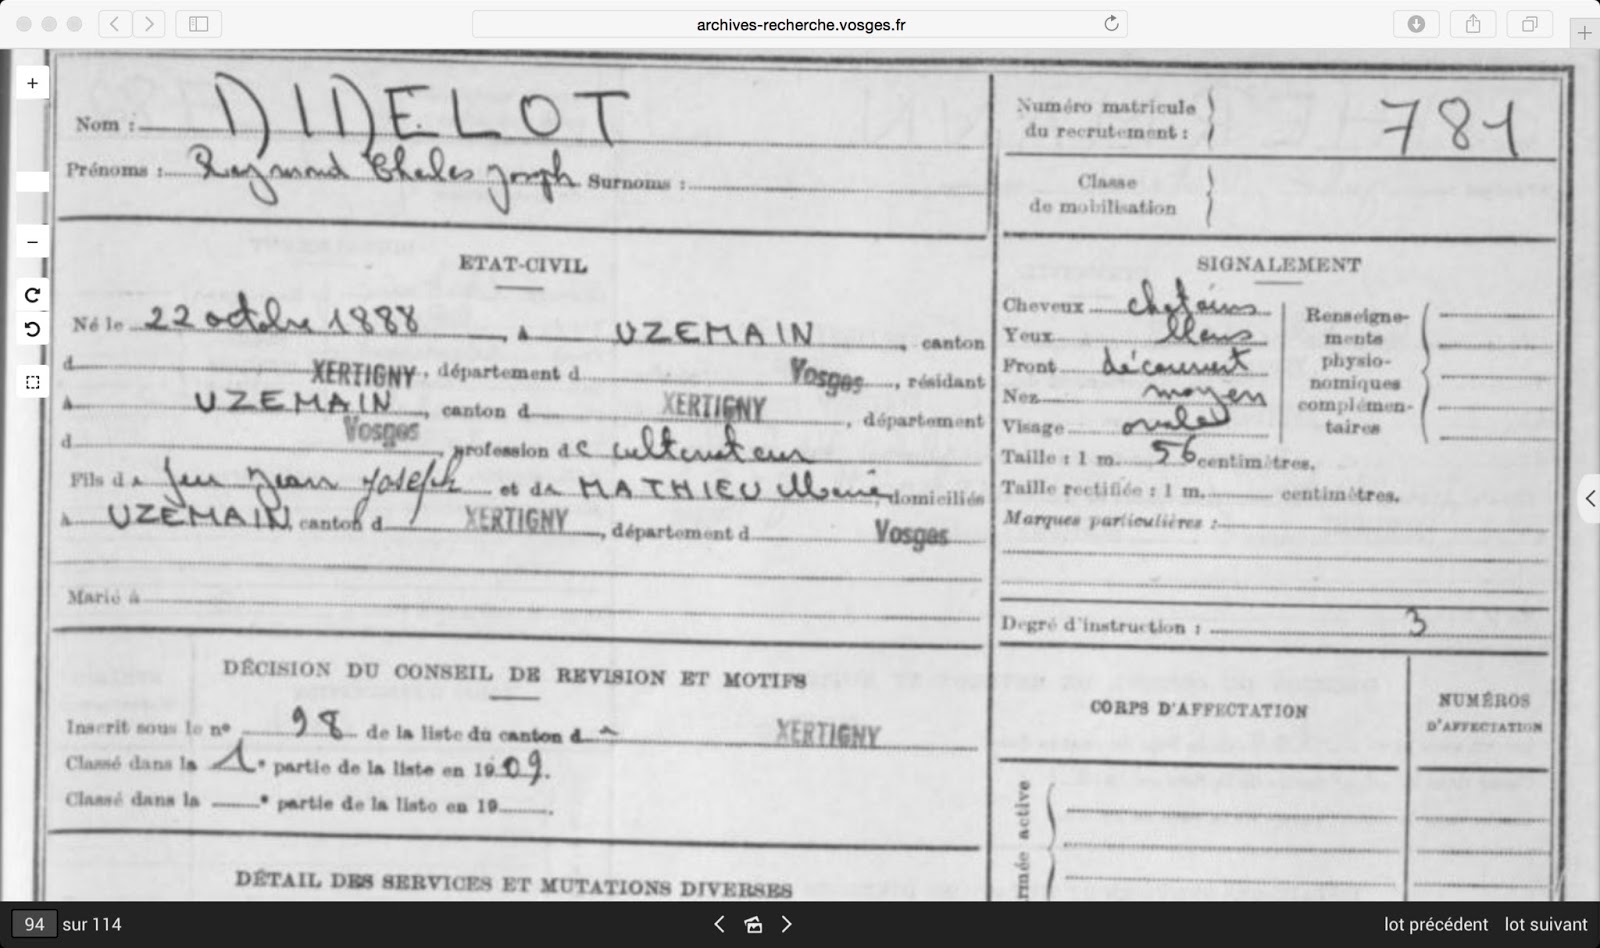 archives-recherche.vosges.fr
Nom : DIDELOT
Prénoms : Raymond Charles Joseph Surnoms :
Numéro matricule
du recrutement : 781
Classe
de mobilisation
ETAT-CIVIL
Né le 22 octobre 1888, à UZEMAIN, canton
d XERTIGNY, département d Vosges, résidant
à UZEMAIN, canton d XERTIGNY, département
d Vosges, profession de cultivateur
Fils de feu Jean Joseph et de MATHIEU Marie, domiciliés
à UZEMAIN, canton d XERTIGNY, département d Vosges
Marié à
SIGNALEMENT
Cheveux chatains
Yeux bleus
Front découvert
Nez moyen
Visage ovale
Renseigne-
ments
physio-
nomiques
complémen-
taires
Taille : 1 m. 56 centimètres.
Taille rectifiée : 1 m. centimètres.
Marques particulières :
Degré d'instruction : 3
DÉCISION DU CONSEIL DE REVISION ET MOTIFS
Inscrit sous le nº 98 de la liste du canton de XERTIGNY
Classé dans la 1e partie de la liste en 1909.
Classé dans la e partie de la liste en 19 .
CORPS D'AFFECTATION
NUMÉROS
D'AFFECTATION
rmée active
DÉTAIL DES SERVICES ET MUTATIONS DIVERSES
94 sur 114
lot précédent lot suivant